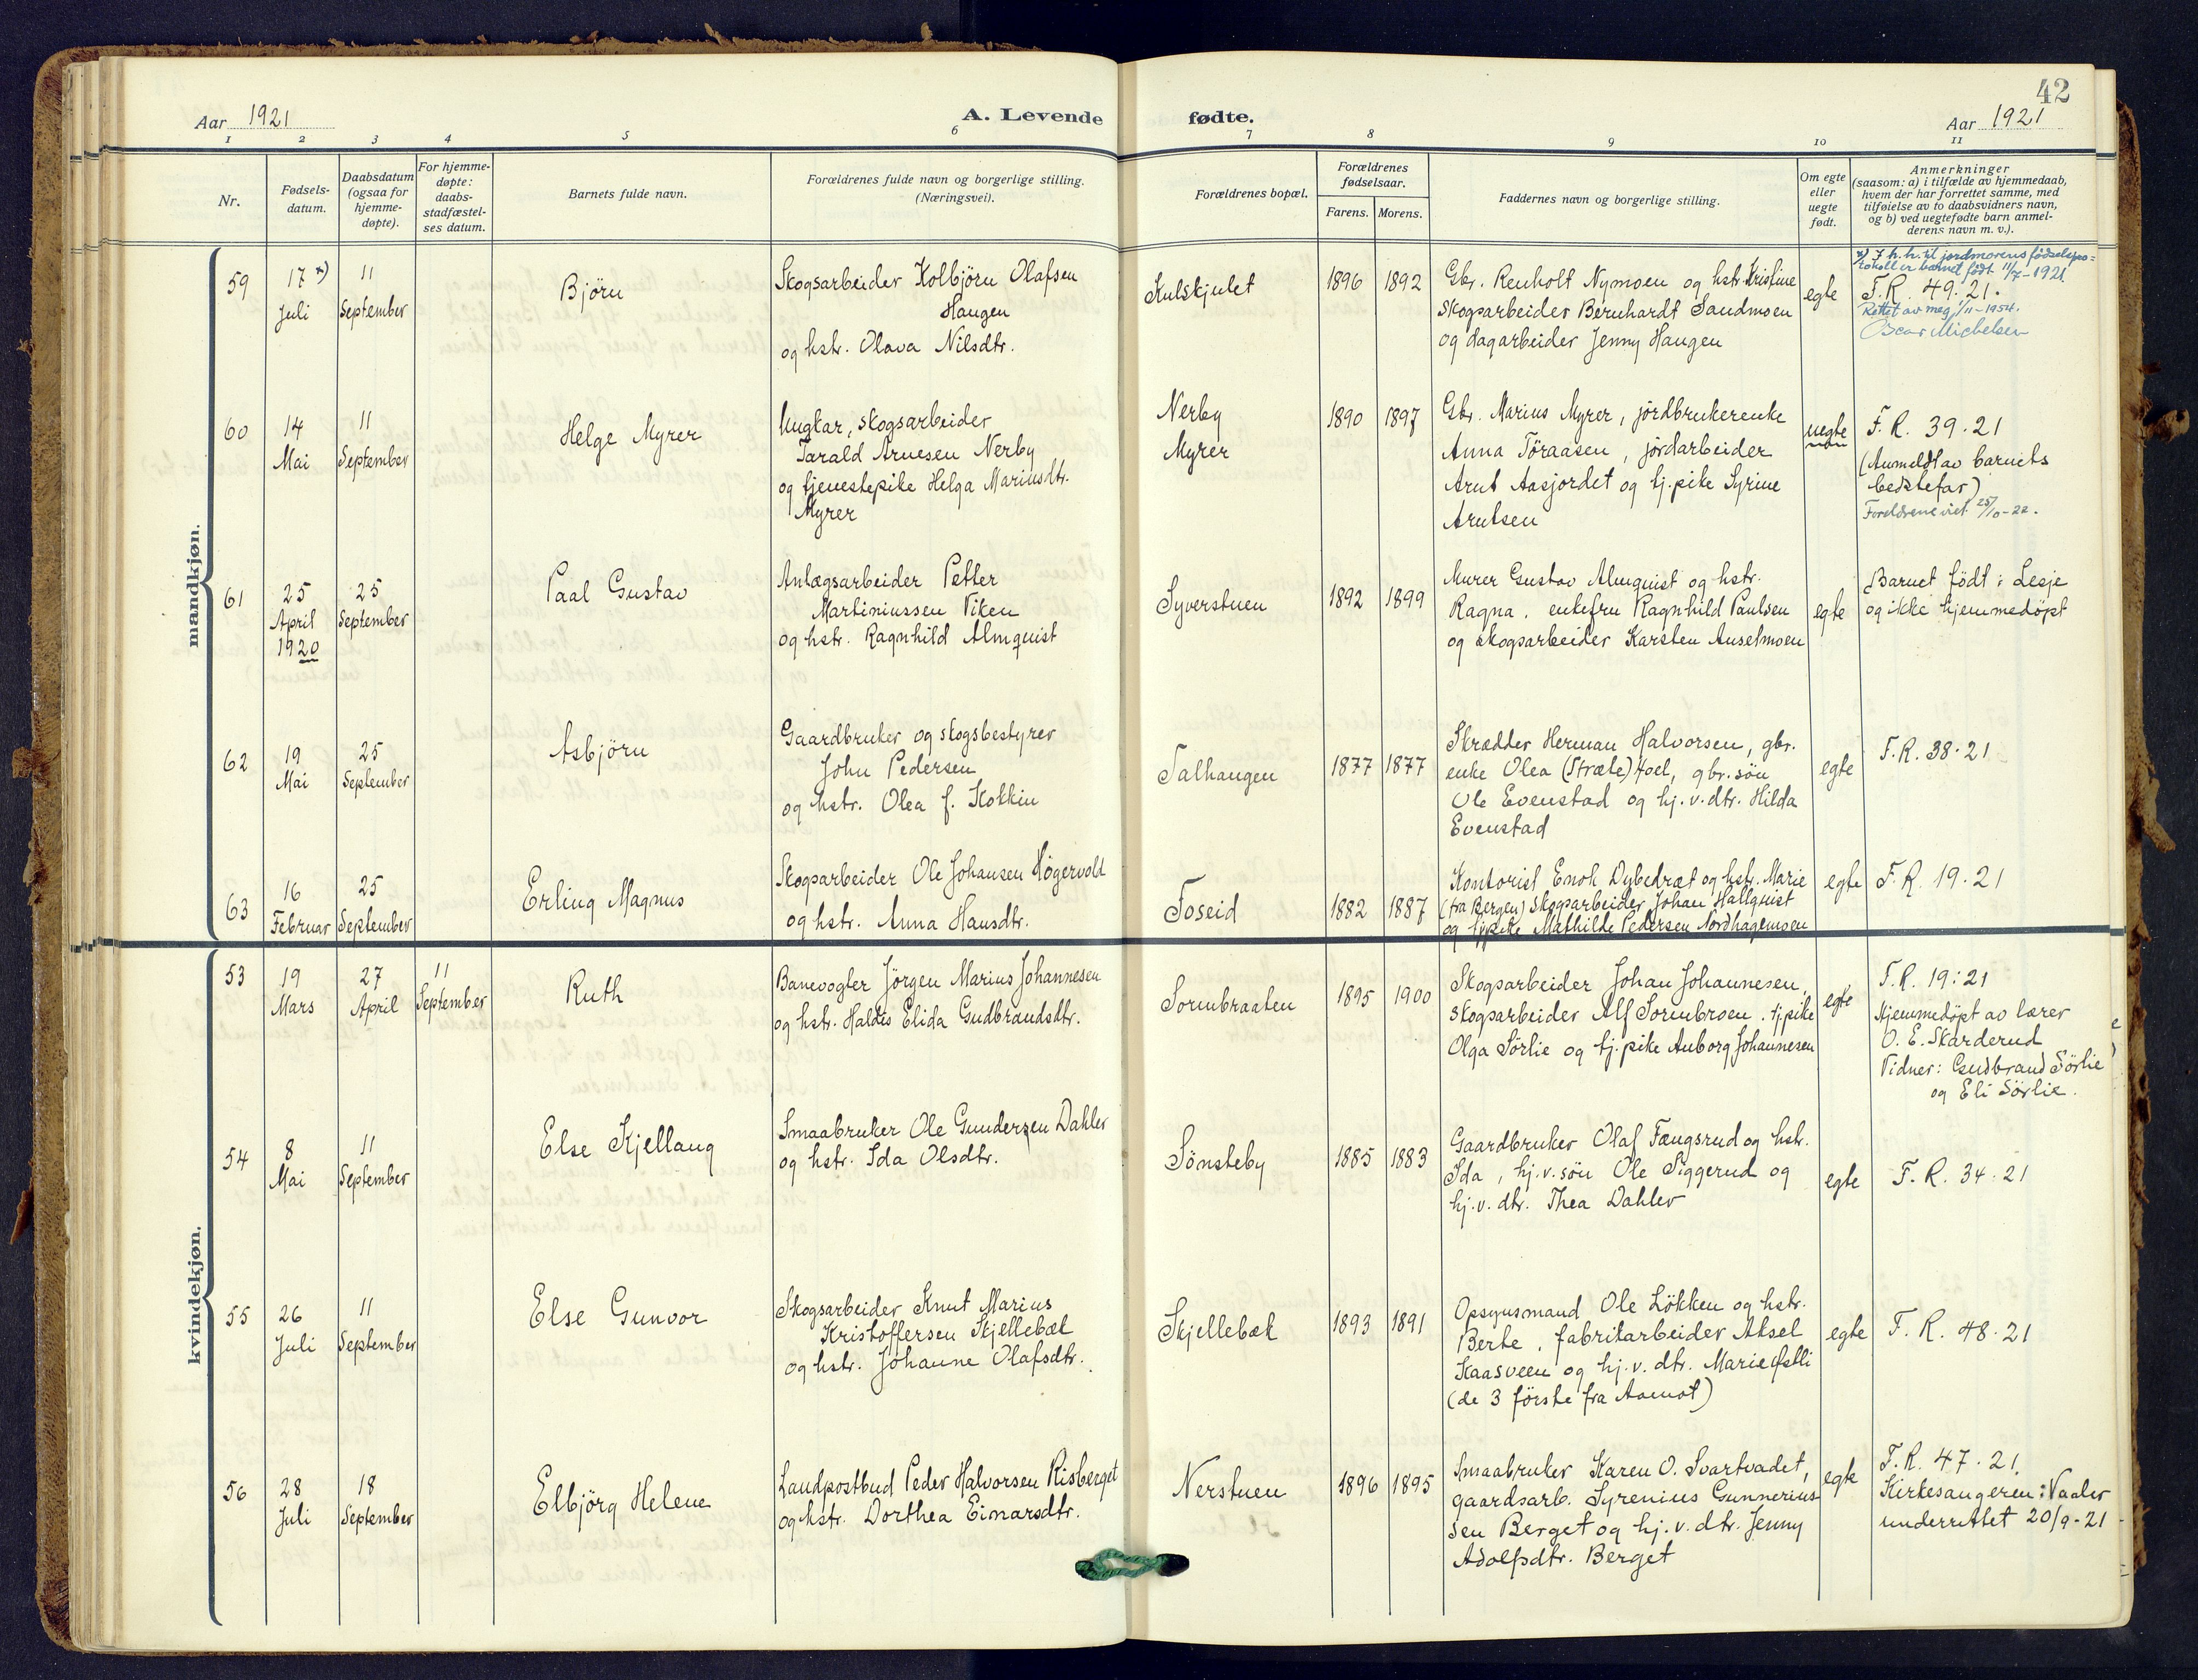 Aar 1921
A. Levende
fødte.
42
Aar 1921
1 2 3 4 5 6 7 8 9 10 11
Nr.
Fødsels-
datum.
Daabsdatum
(ogsaa for
hjemme-
døpte).
For hjemme-
døpte:
daabs-
stadfæstel-
ses datum.
Barnets fulde navn.
Forældrenes fulde navn og borgerlige stilling.
(Næringsvei).
Forældrenes bopæl.
Forældrenes
fødselsaar.
Farens. Morens.
Faddernes navn og borgerlige stilling.
Om egte
eller
uegte
født.
Anmerkninger
(saasom: a) i tilfælde av hjemmedaab,
hvem der har forrettet samme, med
tilføielse av to daabsvidners navn,
og b) ved uegtefødte barn anmel-
derens navn m. v.).
mandkjøn.
59
17 x)
Juli
11
September
Björn
Skogsarbeider Kolbjörn Olafsen
Haugen
og hstr. Olava Nilsdtr.
Kulskjulet
1896
1892
Gbr. Renholt Nymoen og hstr. Kristine
skogsarbeider Bernhardt Sandmoen
og dagarbeider Jenny Haugen
egte
x) I h. h. til jordmorens födselspro=
tokoll er barnet født 11/7-1921.
F.R. 49.21.
Rettet av meg, 1/11-1954.
Oscar Michelsen
60
14
Mai
11
September
Helge Myrer
Ungkar, skogsarbeider
Tarald Arnesen Nerby
og tjenestepike Helga Mariusdtr.
Myrer
Nerby
Myrer
1890
1897
Gbr. Marius Myrer, jordbrukerenke
Anna Töraasen, jordarbeider
Arnt Aasjordet og tj.pike Syrine
Arntsen
uegte
F.R. 39.21
(Anmeldt av barnets
bedstefar)
Foreldrene viet 25/10-22.
61
25
April
1920
25
September
Paal Gustav
Anlægsarbeider Petter
Martiniussen Viken
og hstr. Ragnhild Almquist
Syverstuen
1892
1899
Murer Gustav Almquist og hstr.
Ragna, enkefru Ragnhild Paulsen
og skogsarbeider Karsten Anselmoen
egte
Barnet födt i Lesje
og ikke hjemmedöpt
62
19
Mai
25
September
Asbjörn
Gaardbruker og skogsbestyrer
John Pedersen
og hstr. Olea f. Kokkin
Talhaugen
1877
1877
Skrædder Herman Halvorsen, gbr.
enke Olea (Stræte) Hoel, gbr.sön
Ole Evenstad og hj.v.dtr. Hilda
Evenstad
egte
F.R. 38.21
63
16
Februar
25
September
Erling Magnus
Skogsarbeider Ole Johansen Högervold
og hstr. Anna Hansdtr.
Foseid
1882
1887
Kontorist Enok Dybedræt og hstr. Marie
(fra Bergen) skogsarbeider Johan Hallquist
og tj.pike Mathilde Pedersen Nordhagenmoen
egte
F.R. 19.21
kvindekjøn.
53
19
Mars
27
April
11
September
Ruth
Banevogter Jörgen Marius Johannesen
og hstr. Haldis Elida Gudbrandsdtr.
Sormbraaten
1895
1900
Skogsarbeider Johan Johannesen,
skogsarbeider Alf Sormbroen, tj.pike
Olga Sörlie og tj.pike Anborg Johannesen
egte
F.R. 19:21
Hjemmedöpt av lærer
O. E. Skarderud
Vidner: Gudbrand Sörlie
og Eli Sörlie.
54
8
Mai
11
September
Else Kjellaug
Smaabruker Ole Gundersen Dahler
og hstr. Ida Olsdtr.
Sönsteby
1885
1883
Gaardbruker Olaf Fængsrud og hstr.
Ida, hj.v.sön Ole Siggerud og
hj.v.dtr. Thea Dahler
egte
F.R. 34.21
55
26
Juli
11
September
Else Gunvor
Skogsarbeider Knut Marius
Kristoffersen Skjellebæk
og hstr. Johanne Olafsdtr.
Skjellebæk
1893
1891
Opsynsmand Ole Lökken og hstr.
Berte, fabrikarbeider Aksel
Kaasveen og hj.v.dtr. Marie Östli
(de 3 förste fra Aamot)
egte
F.R. 48.21
56
28
Juli
18
September
Elbjörg Helene
Landpostbud Peder Halvorsen Risberget
og hstr. Dorthea Einarsdtr.
Nerstuen
1896
1895
Smaabruker Karen O. Svartvadet,
gaardsarb. Syrenius Gunnerius-
sen Berget og hj.v.dtr. Jenny
Adolfsdtr. Berget
egte
F.R. 47.21.
Kirkesangeren i Vaaler
underrettet 20/9-21